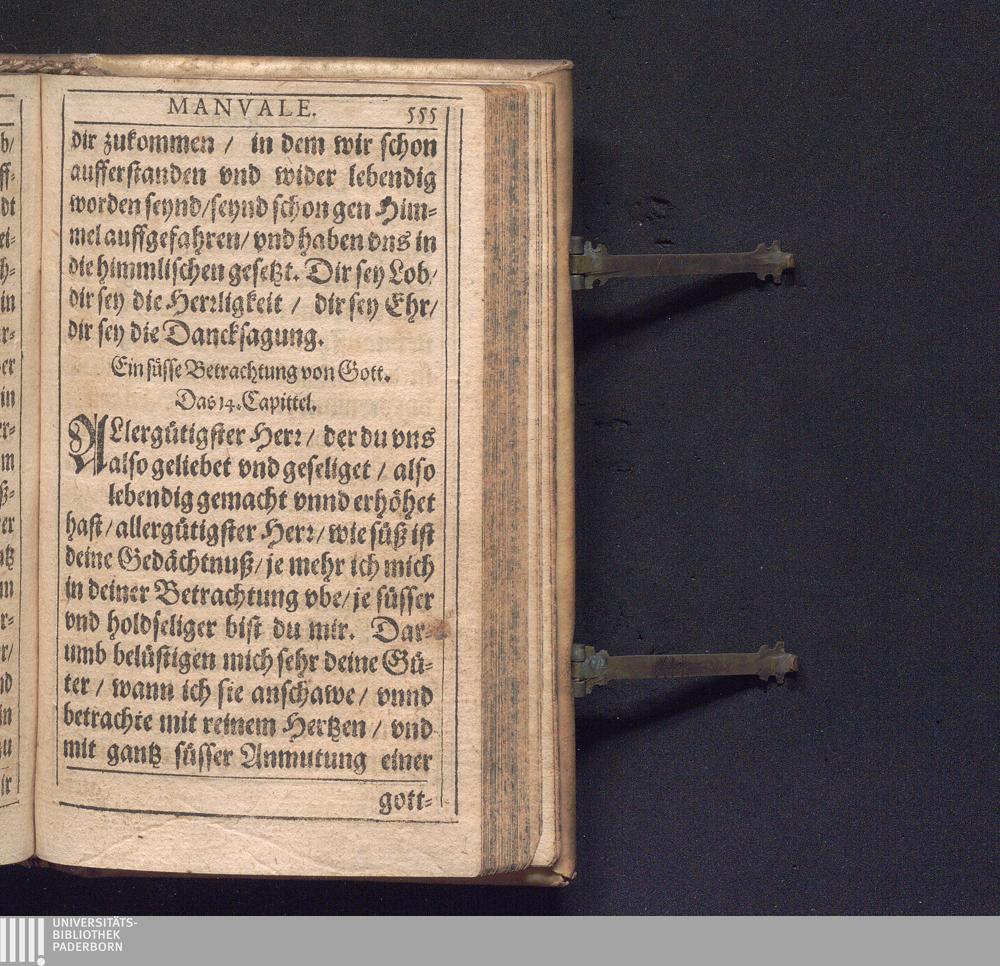 MANVALE. 555
dir zukommen / in dem wir schon
aufferstanden vnd wider lebendig
worden seynd/seynd schon gen Him-
mel auffgefahren/ vnd haben vns in
die himmlischen gesetzt. Dir sey Lob/
dir sey die Herrligkeit / dir sey Ehr/
dir sey die Dancksagung.
Ein süsse Betrachtung von Gott.
Das 14. Capittel.
ALlergütigster Herr / der du vns
also geliebet vnd geseliget / also
lebendig gemacht vnnd erhöhet
hast / allergütigster Herr / wie süß ist
deine Gedächtnuß/ je mehr ich mich
in deiner Betrachtung vbe/ je süsser
vnd holdseliger bist du mir. Dar-
umb belüstigen mich sehr deine Gü-
ter / wann ich sie anschawe / vnnd
betrachte mit reinem Hertzen / vnd
mit gantz süsser Anmutung einer
gott-
UNIVERSITÄTS-
BIBLIOTHEK
PADERBORN